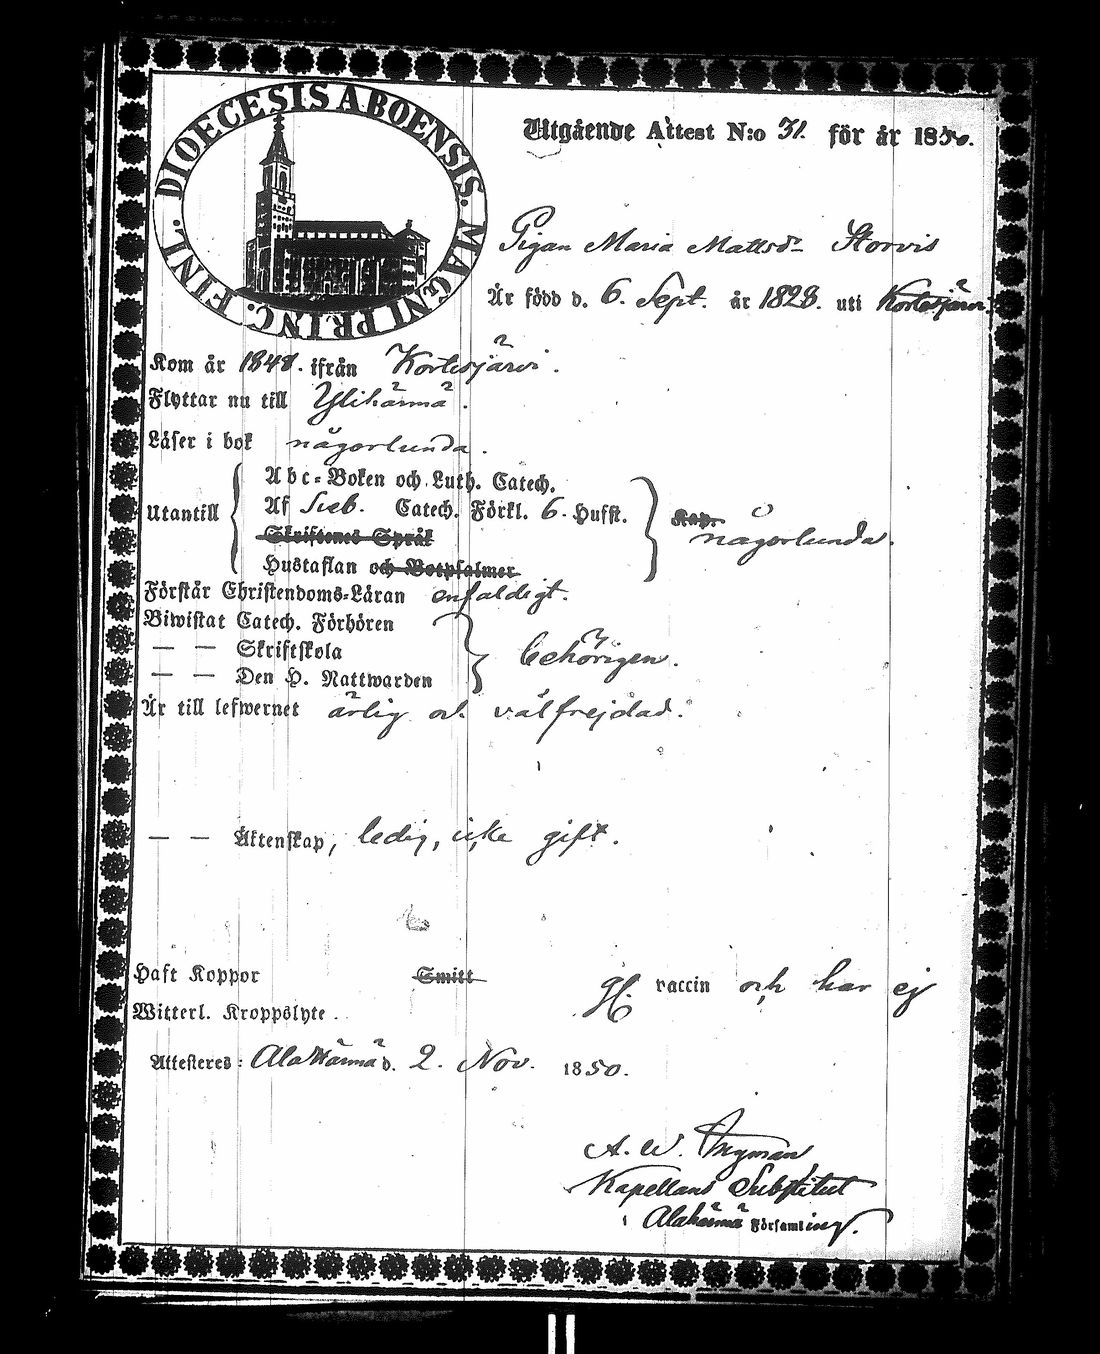 DIOECESIS ABOENSIS. MAGNI PRINC. FINL.
Utgående Attest N:o 31. för år 1850.
Pigan Maria Mattsdr Storvis
Är född d. 6. Sept. år 1828. uti Kortesjärvi.
Kom år 1848. ifrån Kortesjärvi.
Flyttar nu till Ylihärmä.
Läser i bok någorlunda.
Utantill
Abc-Boken och Luth. Catech.
Af Sveb. Catech. Förkl. 6. Hufst.
Skriftenes Språk
Hustaflan och Botpsalmer
Kap.
någorlunda.
Förstår Christendoms-Läran enfaldigt.
Biwistat Catech. Förhören
— — Skriftskola
— — Den H. Nattwarden
behörigen.
Är till lefwernet ärlig och välfrejdad.
— — Äktenskap, ledig, icke gift.
Haft Koppor Smitt vaccin och har ej
Witterl. Kroppslyte.
Attesteres: Alahärmä d. 2. Nov. 1850.
A. W. Ingman
Kapellans Substitut
i Alahärmä Församling.